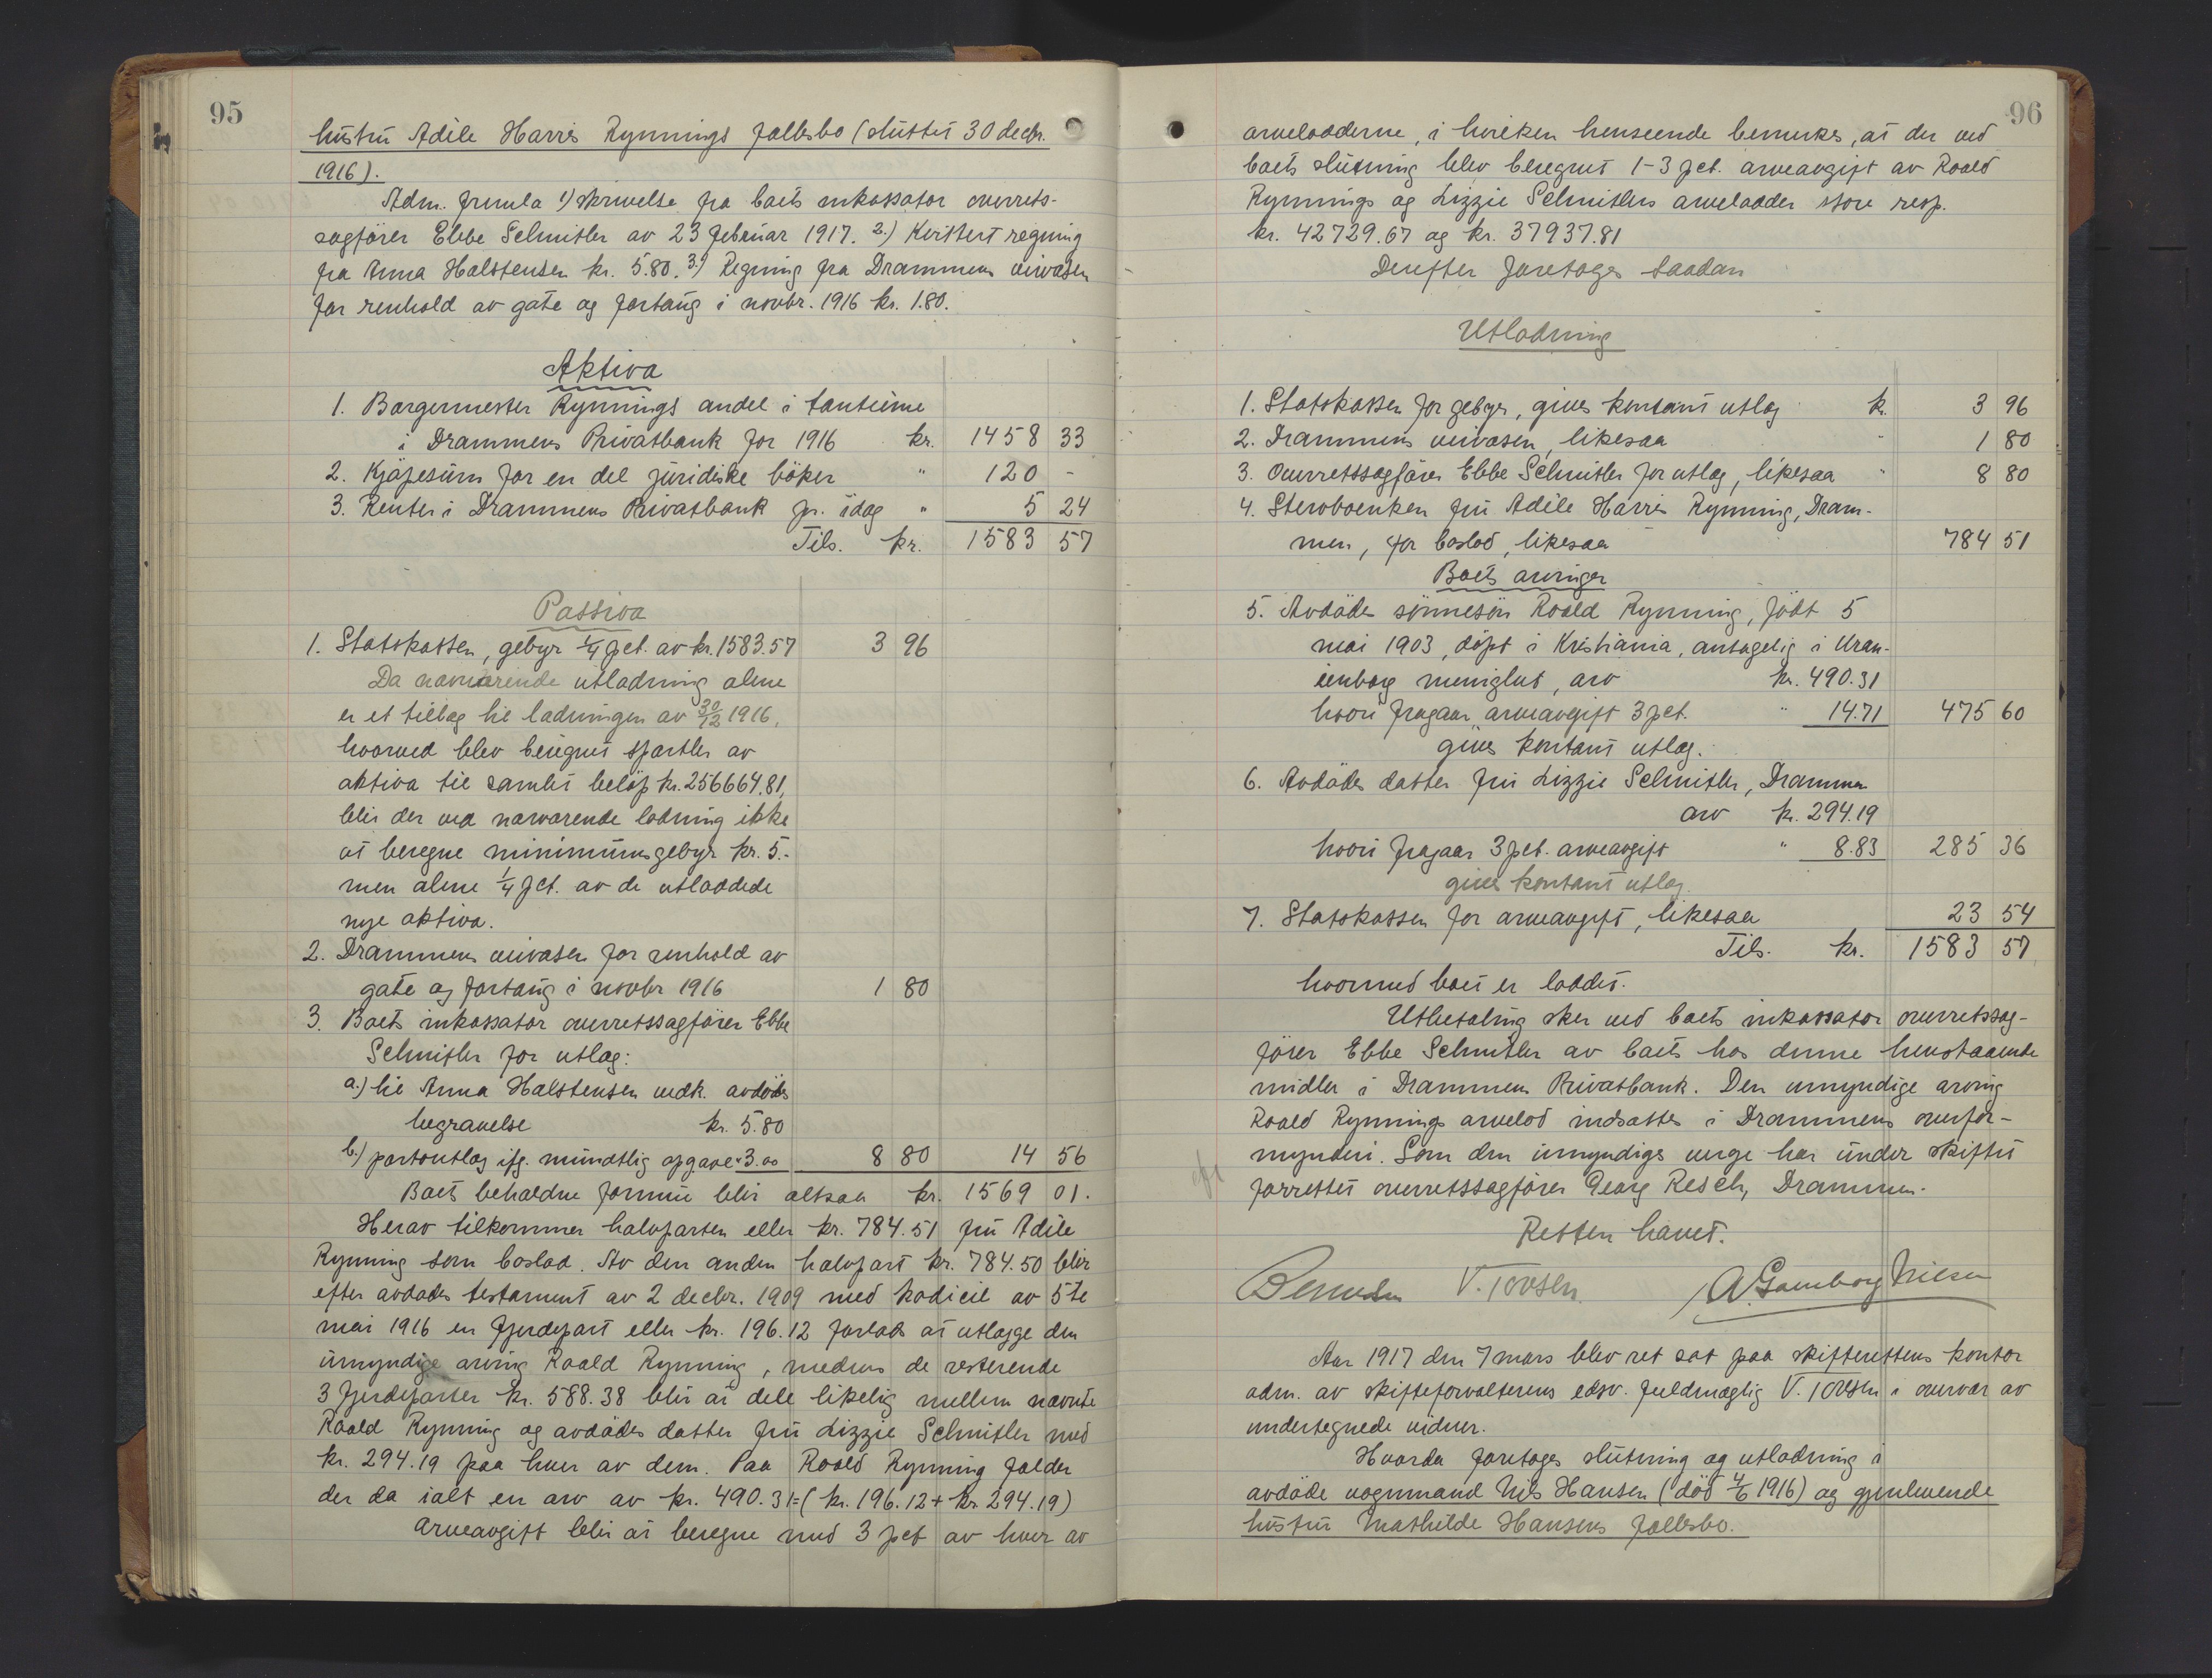 95
hustru Adèle Harris Rynnings fællesbo (sluttet 30 decbr.
1916).
Adm. fremla 1) skrivelse fra boets inkassator overrets-
sagfører Ebbe Schnitler av 23 februar 1917. 2.) Kvittert regning
fra Anna Halstensen kr. 5.80. 3.) Regning fra Drammens veivæsen
for renhold av gate og fortaug i novbr. 1916 kr. 1.80.
Aktiva
1. Borgermester Rynnings andel i tantieme
i Drammens Privatbank for 1916 kr. 1458 33
2. Kjøpesum for en del juridiske bøker " 120 -
3. Renter i Drammens Privatbank pr. idag " 5 24
Tils. kr. 1583 57
Passiva
1. Statskassen, gebyr 1/4 pct. av kr. 1583.57 3 96
Da nærværende utlodning alene
er et tillæg til lodningen av 30/12 1916,
hvorved blev beregnet sportler av
aktiva til samlet beløp kr. 256664.81,
blir der ved nærværende lodning ikke
at beregne minimumsgebyr kr. 5.-
men alene 1/4 pct. av de utloddede
nye aktiva.
2. Drammens veivæsen for renhold av
gate og fortaug i novbr 1916 1 80
3. Boets inkassator overretssagfører Ebbe
Schnitler for utlæg:
a.) til Anna Halstensen vedk. avdødes
begravelse kr. 5.80
b.) portoutlæg ifg. mundtlig opgave " 3.00 8 80 14 56
Boets beholdne formue blir altsaa kr. 1569 01.
Herav tilkommer halvparten eller kr. 784.51 fru Adèle
Rynning som boslod. Av den anden halvpart kr. 784.50 blir
efter avdødes testament av 2 decbr. 1909 med kodicil av 5te
mai 1916 en fjerdepart eller kr. 196.12 forlods at utlægge den
umyndige arving Roald Rynning, medens de resterende
3 fjerdeparter kr. 588.38 blir at dele likelig mellem nævnte
Roald Rynning og avdødes datter fru Lizzie Schnitler med
kr. 294.19 paa hver av dem. Paa Roald Rynning falder
der da ialt en arv av kr. 490.31 = (kr. 196.12 + kr 294.19)
Arveavgift blir at beregne med 3 pct av hver av
96
arveloddene, i hvilken henseende bemerkes, at der ved
boets slutning blev beregnet 1-3 pct. arveavgift av Roald
Rynnings og Lizzie Schnitlers arvelodder store resp.
kr. 42729.67 og kr. 37937.81
Derefter foretoges saadan
Utlodning
1. Statskassen for gebyr, gives kontant utlæg k. 3 96
2. Drammens veivæsen, likesaa " 1 80
3. Overretssagfører Ebbe Schnitler for utlæg, likesaa " 8 80
4. Stervboenken fru Adèle Harris Rynning, Dram-
men, for boslod, likesaa 784 51
Boets arvinger
5. Avdødes sønnesøn Roald Rynning, født 5
mai 1903, døpt i Kristiania, antagelig i Uran-
ienborg menighet, arv kr. 490.31
hvori fragaar arveavgift 3 pct. " 14.71 475 60
gives kontant utlæg.
6. Avdødes datter fru Lizzie Schnitler, Drammen
arv kr. 294.19
hvori fragaar 3 pct. arveavgift " 8.83 285 36
gives kontant utlæg.
7. Statskassen for arveavgift, likesaa 23 54
Tils. kr. 1583 57
hvormed boet er loddet.
Utbetaling sker ved boets inkassator overretssag-
fører Ebbe Schnitler av boets hos denne henstaaende
midler i Drammens Privatbank. Den umyndige arving
Roald Rynnings arvelod indsættes i Drammens overfor-
mynderi. Som den umyndiges verge har under skiftet
forrettet overretssagfører Georg Resch, Drammen.
Retten hævet.
V. Torsen A. Gamborg Nilsen
Aar 1917 den 7 mars blev ret sat paa skifterettens kontor
adm. av skifteforvalterens edsv. fuldmægtig V. Torsen i overvær av
undertegnede vidner.
Hvorda foretoges slutning og utlodning i
avdøde vognmand Nils Hansen (død 4/6 1916) og gjenlevende
hustru Mathilde Hansens fællesbo.